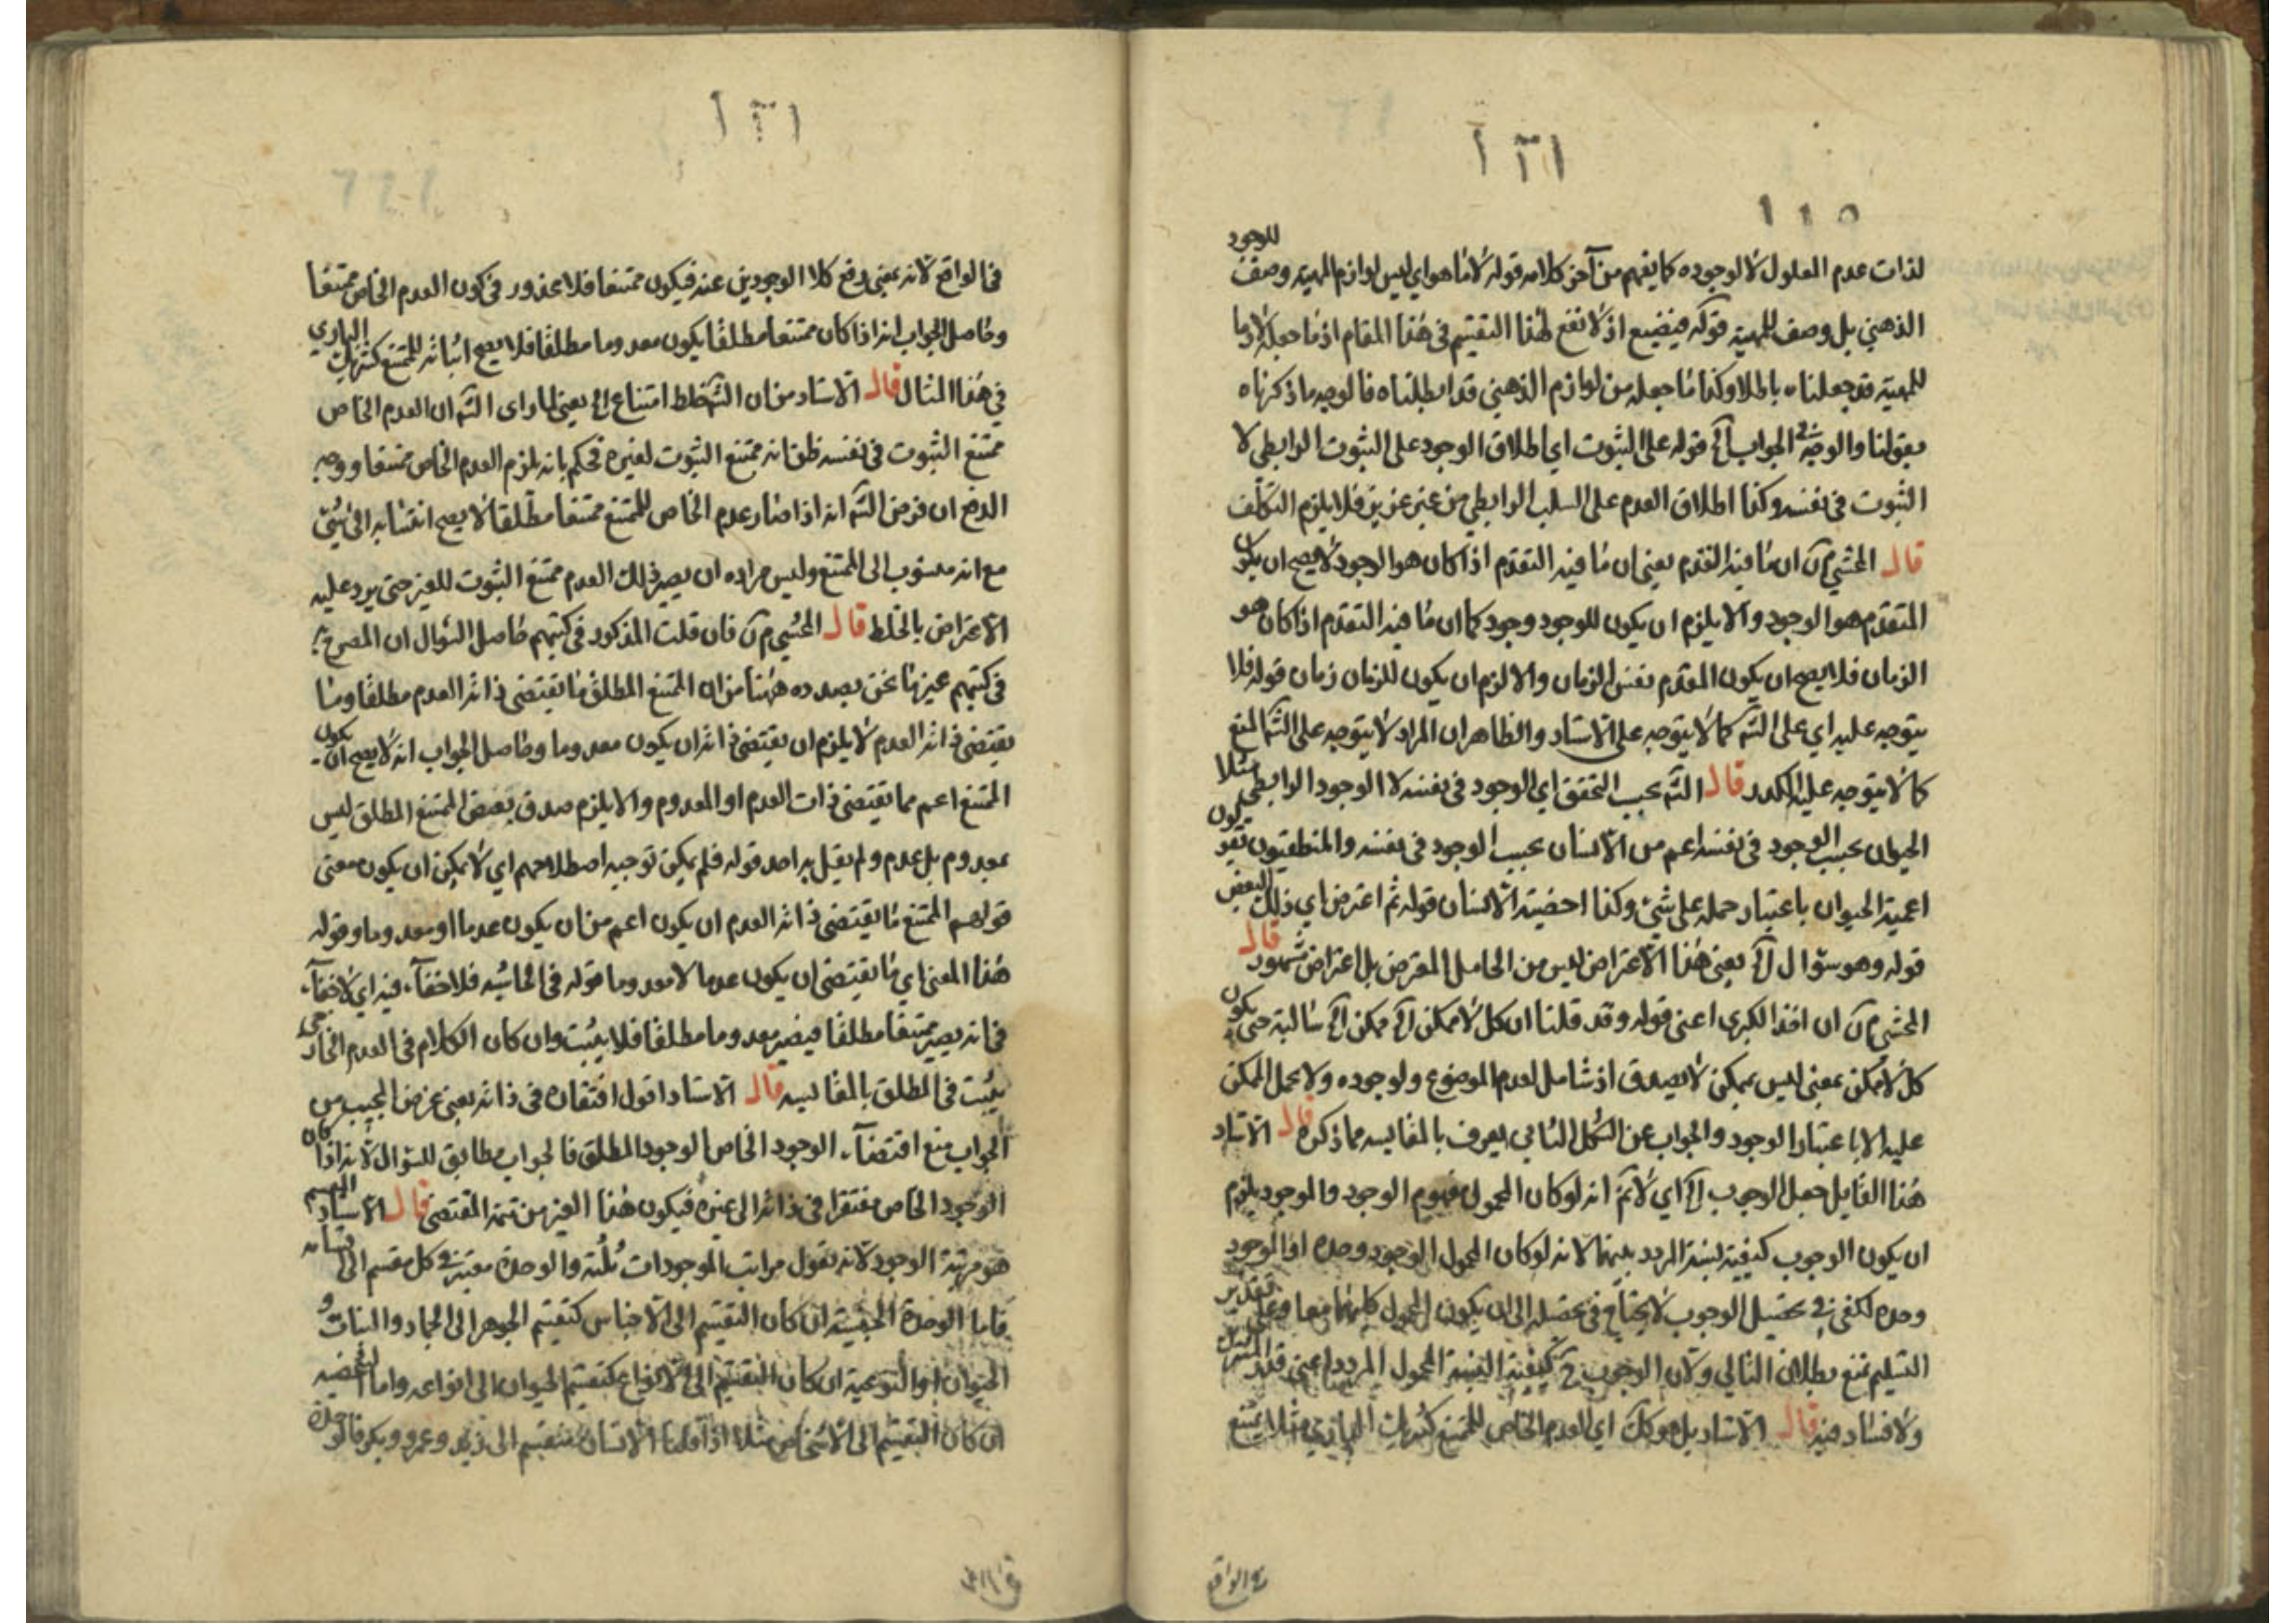 ١٣١
١١٥
لذات عدم المعلول لا لوجوده كما يفهم من آخر كلامه قوله لا ما هو اي ليس لوازم المهية وصف للوجود
الذهني بل وصف للمهية قوله فيضيع اذ لا نفع لهذا التقسيم في هذا المقام اذ ما جعله لازما
للمهية قد جعلناه باطلا وكذا ما جعله من لوازم الذهني قد ابطلناه فالوجه ما ذكرناه
بقولنا والوجه في الجواب آه قوله على الثبوت اي اطلاق الوجود على الثبوت الرابطي لا
الثبوت في نفسه وكذا اطلاق العدم على السلب الرابطي من غير عزيز فلا يلزم التكلف
قال المحشي م ن ان ما فيه التقدم يعني ان ما فيه التقدم اذا كان هو الوجود لا يصح ان يكون
المتقدم هو الوجود والا يلزم ان يكون للوجود وجود كما ان ما فيه التقدم اذا كان هو
الزمان فلا يصح ان يكون المتقدم نفس الزمان والا لزم ان يكون للزمان زمان قوله فلا
يتوجه عليه اي على الشه كما لا يتوجه على الاستاد والظاهر ان المراد لا يتوجه على الشه المنع
كما لا يتوجه عليه الكدر قال الشه بحسب التحقق اي الوجود في نفسه لا الوجود الرابطي مثلا
الحيوان بحسب الوجود في نفسه اعم من الانسان بحسب الوجود في نفسه والمنطقيون يقولون
اعمية الحيوان باعتبار حمله على شيئ وكذا اخصية الانسان قوله ثم اعترض اي ذلك البعض
قوله وهو سؤال آه يعني هذا الاعتراض ليس من الحامل المعترض بل اعتراض مشهور قال
المحشي م ن ان اخذ الكبرى اعني قوله وقد قلنا ان كل لا ممكن آه ممكن آه سالبة حتى يكون
كل لا ممكن بمعنى ليس بممكن لا يصدق اذ شامل لعدم الموضوع ولوجوده ولا يحمل الممكن
عليه الا باعتبار الوجود والجواب عن الشكل الثاني يعرف بالمقايسه مما ذكره قال الاستاد
هذا القايل جعل الوجوب آه اي لا نم انه لو كان المحمول مفهوم الوجود والموجود يلزم
ان يكون الوجوب كيفية لنسبة المردد بينهما لانه لو كان المحمول الوجود وحده او الموجود
وحده لكفى في تحصيل الوجوب لا يحتاج في تحصله الى ان يكون المحمول كليهما معا وعلى تقدير
التسليم نمنع بطلان التالي ولان الوجوب ح كيفية النسبة المحمول المردد اعني قدر المشترك
ولا فساد فيه قال الاستاد بل هو كك اي العدم الخاص للممتنع كشريك الباري مثلا يمتنع
في الواقع
١٣١
في الواقع لانه يعني رفع كلا الوجودين عنه فيكون ممتنعا فلا محذور في كون العدم الخاص ممتنعا
وحاصل الجواب انه اذا كان ممتنعا مطلقا يكون معدوما مطلقا فلا يصح اثباته للممتنع كشريك الباري
في هذا المثال قال الاستاد من ان الشه خلط امتناع اه يعني لما راى الشه ان العدم الخاص
ممتنع الثبوت في نفسه ظن انه ممتنع الثبوت لغيره فحكم بانه يلزم العدم الخاص ممتنعا ووجه
الدفع ان غرض الشه انه اذا صار عدم الخاص للممتنع ممتنعا مطلقا لا يصح انتسابه الى شيئ
مع انه منسوب الى الممتنع وليس مراده ان يصير ذلك العدم ممتنع الثبوت للغير حتى يرد عليه
الاعتراض بالخلط قال المحشي م ن فان قلت المذكور في كتبهم حاصل السؤال ان المصرح به
في كتبهم غير ما نحن بصدده ههنا من ان الممتنع المطلق ما يقتضي ذاته العدم مطلقا وما
يقتضي ذاته العدم لا يلزم ان يقتضي ذاته ان يكون معدوما وحاصل الجواب انه لا يصح ان يكون
الممتنع اعم مما يقتضي ذات العدم او المعدوم والا يلزم صدق بعض الممتنع المطلق ليس
بمعدوم بل عدم ولم يقل به احد قوله فلم يمكن توجيه اصطلاحهم اي لا يمكن ان يكون معنى
قولهم الممتنع ما يقتضي ذاته العدم ان يكون اعم من ان يكون عدما او معدوما وقوله
هذا المعنى اي ما يقتضي ان يكون عدما لا معدوما قوله في الحاشيه فلا خفآء فيه اي لا خفآء
في انه يصير ممتنعا مطلقا فيصير معدوما مطلقا فلا يثبت وان كان الكلام في العدم الخارجي
يثبت في المطلق بالمقايسه قال الاستاد اقول افتقاره في ذاته يعني غرض المجيب من
الجواب منع اقتضآء الوجود الخاص الوجود المطلق فالجواب مطابق للسؤال لانه اذا كان
الوجود الخاص مفتقرا في ذاته الى غيره فيكون هذا الغير من تتمة المقتضي قال الاستاد
هو مرتبة الوجود لانه يقول مراتب الموجودات ثلثة والوحدة معتبرة في كل مقسم الى اقسامه
فاما الوحدة الجنسية ان كان التقسيم الى الاجناس كتقسيم الجوهر الى الجماد والنبات و
الحيوان او النوعية ان كان التقسيم الى الانواع كتقسيم الحيوان الى انواعه واما الشخصيه
ان كان التقسيم الى الاشخاص مثلا اذا قلنا الانسان منقسم الى زيد وعمرو وبكر فالوحدة